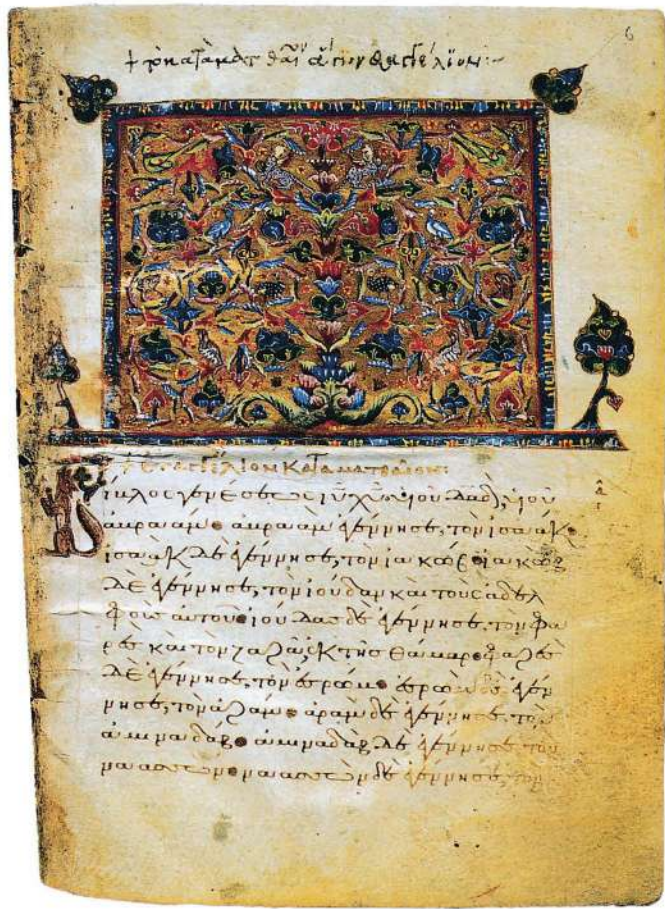 6
+ τὸ κατὰ ματθαῖ ἅγιον εὐαγγέλιον:~
+ Εὐαγγέλιον κατὰ ματθαῖον:
Βίβλος γενέσεως ἰῦ χῦ υἱοῦ δαδ, υἱοῦ
ἀβραάμ· ἀβραὰμ ἐγέννησε, τὸν ἰσαάκ·
ἰσαὰκ δὲ ἐγέννησε, τὸν ἰακώβ· ἰακὼβ
δὲ ἐγέννησε, τὸν ἰούδαν καὶ τοὺς ἀδελ
φοὺς αὐτοῦ· ἰούδας δὲ ἐγέννησε, τὸν φα
ρὲς καὶ τὸν ζαρὰ, ἐκ τῆς θάμαρ· φαρὲς
δὲ ἐγέννησε, τὸν ἐσρώμ· ἐσρὼμ δὲ ἐγέν
νησε, τὸν ἀράμ· ἀρὰμ δὲ ἐγέννησε, τὸν
ἀμιναδάβ· ἀμιναδὰβ δὲ ἐγέννησε, τὸν
ναασσών· ναασσὼν δὲ ἐγέννησε, τὸν